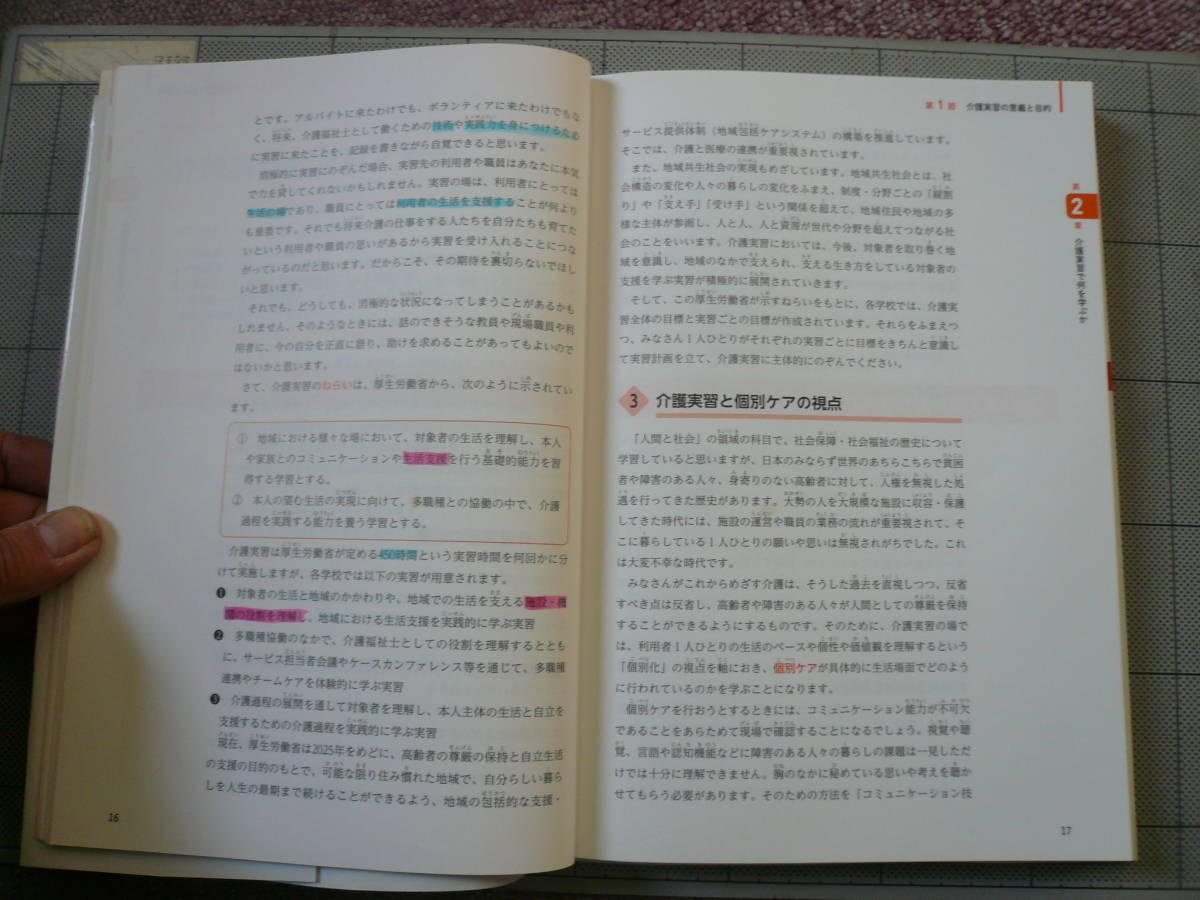 とです。アルバイトに来たわけでも、ボランティアに来たわけでもな
く、将来、介護福祉士として働くための技術や実践力を身につけるため
に実習に来たことを、記録を書きながら自覚できると思います。
消極的に実習にのぞんだ場合、実習先の利用者や職員はあなたに本気
で力を貸してくれないかもしれません。実習の場は、利用者にとっては
生活の場であり、職員にとっては利用者の生活を支援することが何より
も重要です。それでも将来介護の仕事をする人たちを自分たちも育てた
いという利用者や職員の思いがあるから実習を受け入れることにつな
がっているのだと思います。だからこそ、その期待を裏切らないでほし
いと思います。
それでも、どうしても、消極的な状況になってしまうことがあるかも
しれません。そのようなときには、話のできそうな教員や現場職員や利
用者に、今の自分を正直に語り、助けを求めることがあってもよいので
はないかと思います。
さて、介護実習のねらいは、厚生労働省から、次のように示されてい
ます。
① 地域における様々な場において、対象者の生活を理解し、本人
や家族とのコミュニケーションや生活支援を行う基礎的能力を習
得する学習とする。
② 本人の望む生活の実現に向けて、多職種との協働の中で、介護
過程を実践する能力を養う学習とする。
介護実習は厚生労働省が定める450時間という実習時間を何回かに分
けて実施しますが、各学校では以下の実習が用意されます。
❶ 対象者の生活と地域のかかわりや、地域での生活を支える施設・機
関の役割を理解し、地域における生活支援を実践的に学ぶ実習
❷ 多職種協働のなかで、介護福祉士としての役割を理解するととも
に、サービス担当者会議やケースカンファレンス等を通じて、多職種
連携やチームケアを体験的に学ぶ実習
❸ 介護過程の展開を通して対象者を理解し、本人主体の生活と自立を
支援するための介護過程を実践的に学ぶ実習
現在、厚生労働省は2025年をめどに、高齢者の尊厳の保持と自立生活
の支援の目的のもとで、可能な限り住み慣れた地域で、自分らしい暮ら
しを人生の最期まで続けることができるよう、地域の包括的な支援・
16
第1節 介護実習の意義と目的
サービス提供体制（地域包括ケアシステム）の構築を推進しています。
そこでは、介護と医療の連携が重要視されています。
また、地域共生社会の実現もめざしています。地域共生社会とは、社
会構造の変化や人々の暮らしの変化をふまえ、制度・分野ごとの「縦割
り」や「支え手」「受け手」という関係を超えて、地域住民や地域の多
様な主体が参画し、人と人、人と資源が世代や分野を超えてつながる社
会のことをいいます。介護実習においては、今後、対象者を取り巻く地
域を意識し、地域のなかで支えられ、支える生き方をしている対象者の
支援を学ぶ実習が積極的に展開されていきます。
そして、この厚生労働省が示すねらいをもとに、各学校では、介護実
習全体の目標と実習ごとの目標が作成されています。それらをふまえつ
つ、みなさん1人ひとりがそれぞれの実習ごとに目標をきちんと意識し
て実習計画を立て、介護実習に主体的にのぞんでください。
3 介護実習と個別ケアの視点
「人間と社会」の領域の科目で、社会保障・社会福祉の歴史について
学習していると思いますが、日本のみならず世界のあちらこちらで貧困
者や障害のある人々、身寄りのない高齢者に対して、人権を無視した処
遇を行ってきた歴史があります。大勢の人を大規模な施設に収容・保護
してきた時代には、施設の運営や職員の業務の流れが重要視されて、そ
こに暮らしている1人ひとりの願いや思いは無視されがちでした。これ
は大変不幸な時代です。
みなさんがこれからめざす介護は、そうした過去を直視しつつ、反省
すべき点は反省し、高齢者や障害のある人々が人間としての尊厳を保持
することができるようにするものです。そのために、介護実習の場で
は、利用者1人ひとりの生活のペースや個性や価値観を理解するという
「個別化」の視点を軸におき、個別ケアが具体的に生活場面でどのよう
に行われているのかを学ぶことになります。
個別ケアを行おうとするときには、コミュニケーション能力が不可欠
であることをあらためて現場で確認することになるでしょう。視覚や聴
覚、言語や認知機能などに障害のある人々の暮らしの課題は一見しただ
けでは十分に理解できません。胸のなかに秘めている思いや考えを聴か
せてもらう必要があります。そのための方法を『コミュニケーション技
第2章 介護実習で何を学ぶか
17